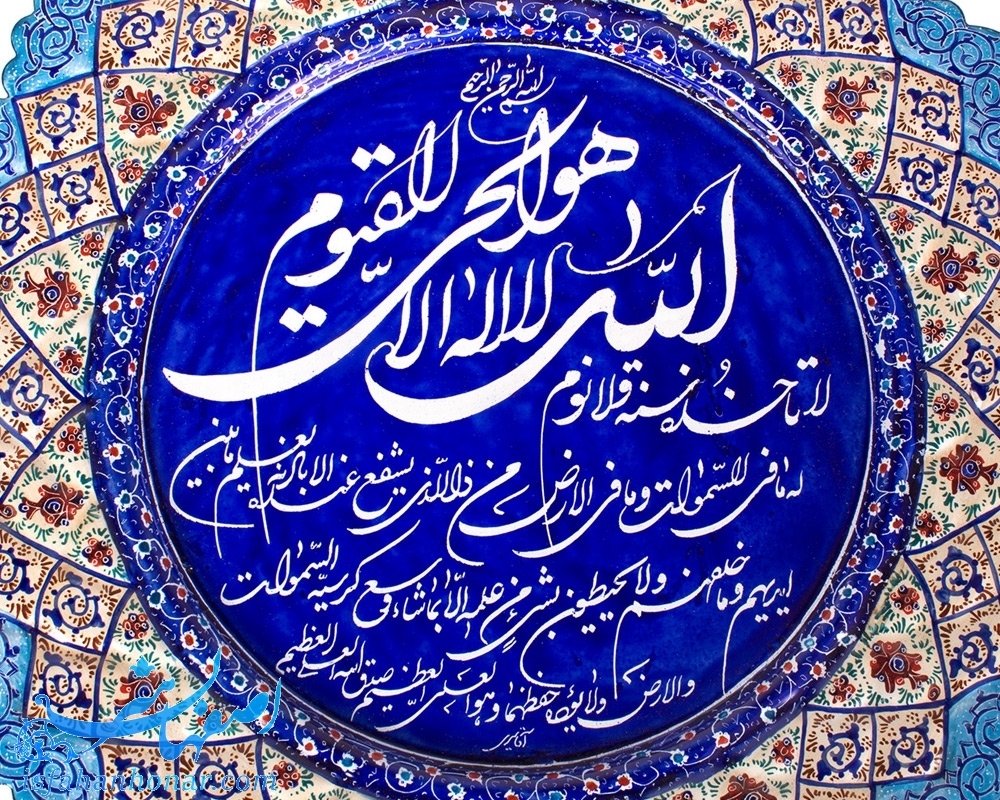 بسم الله الرحمن الرحیم
الله لا اله الا هو الحی القیوم
لا تاخذه سنة ولا نوم
له ما فی السموات وما فی الارض من ذا الذی یشفع عنده الا باذنه یعلم ما بین
ایدیهم وما خلفهم ولا یحیطون بشیء من علمه الا بما شاء وسع کرسیه السموات
والارض ولا یؤده حفظهما وهو العلی العظیم صدق الله العلی العظیم
اصفهان هنر
isfahanhonar.com